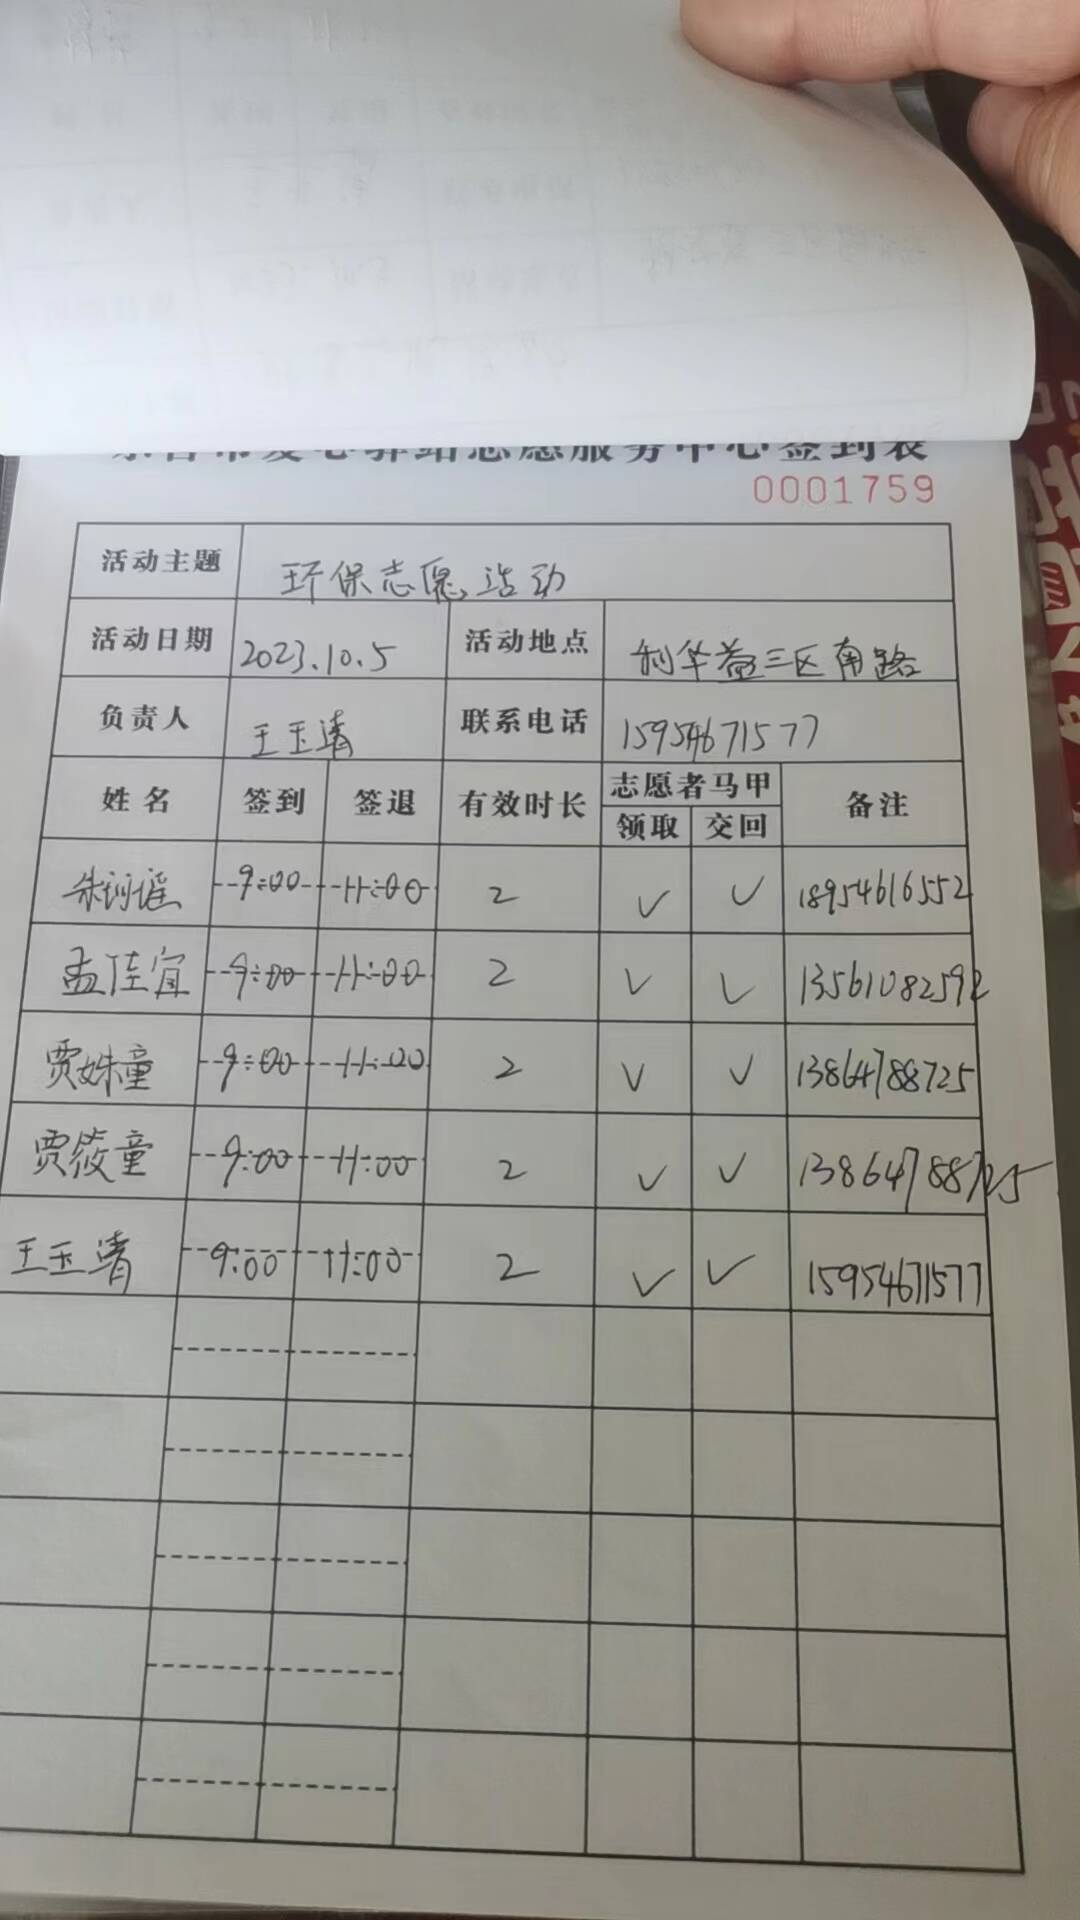 东营市爱心驿站志愿服务中心签到表
0001759
活动主题 环保志愿活动
活动日期 2023.10.5 活动地点 利华益三区南路
负责人 王玉清 联系电话 15954671577
姓名 签到 签退 有效时长 志愿者马甲 备注
领取 交回
朱珂谣 9:00 11:00 2 ✓ ✓ 18954616552
孟佳宜 9:00 11:00 2 ✓ ✓ 13561082592
贾姝童 9:00 11:00 2 ✓ ✓ 13864788725
贾筱童 9:00 11:00 2 ✓ ✓ 13864788725
王玉清 9:00 11:00 2 ✓ ✓ 15954671577